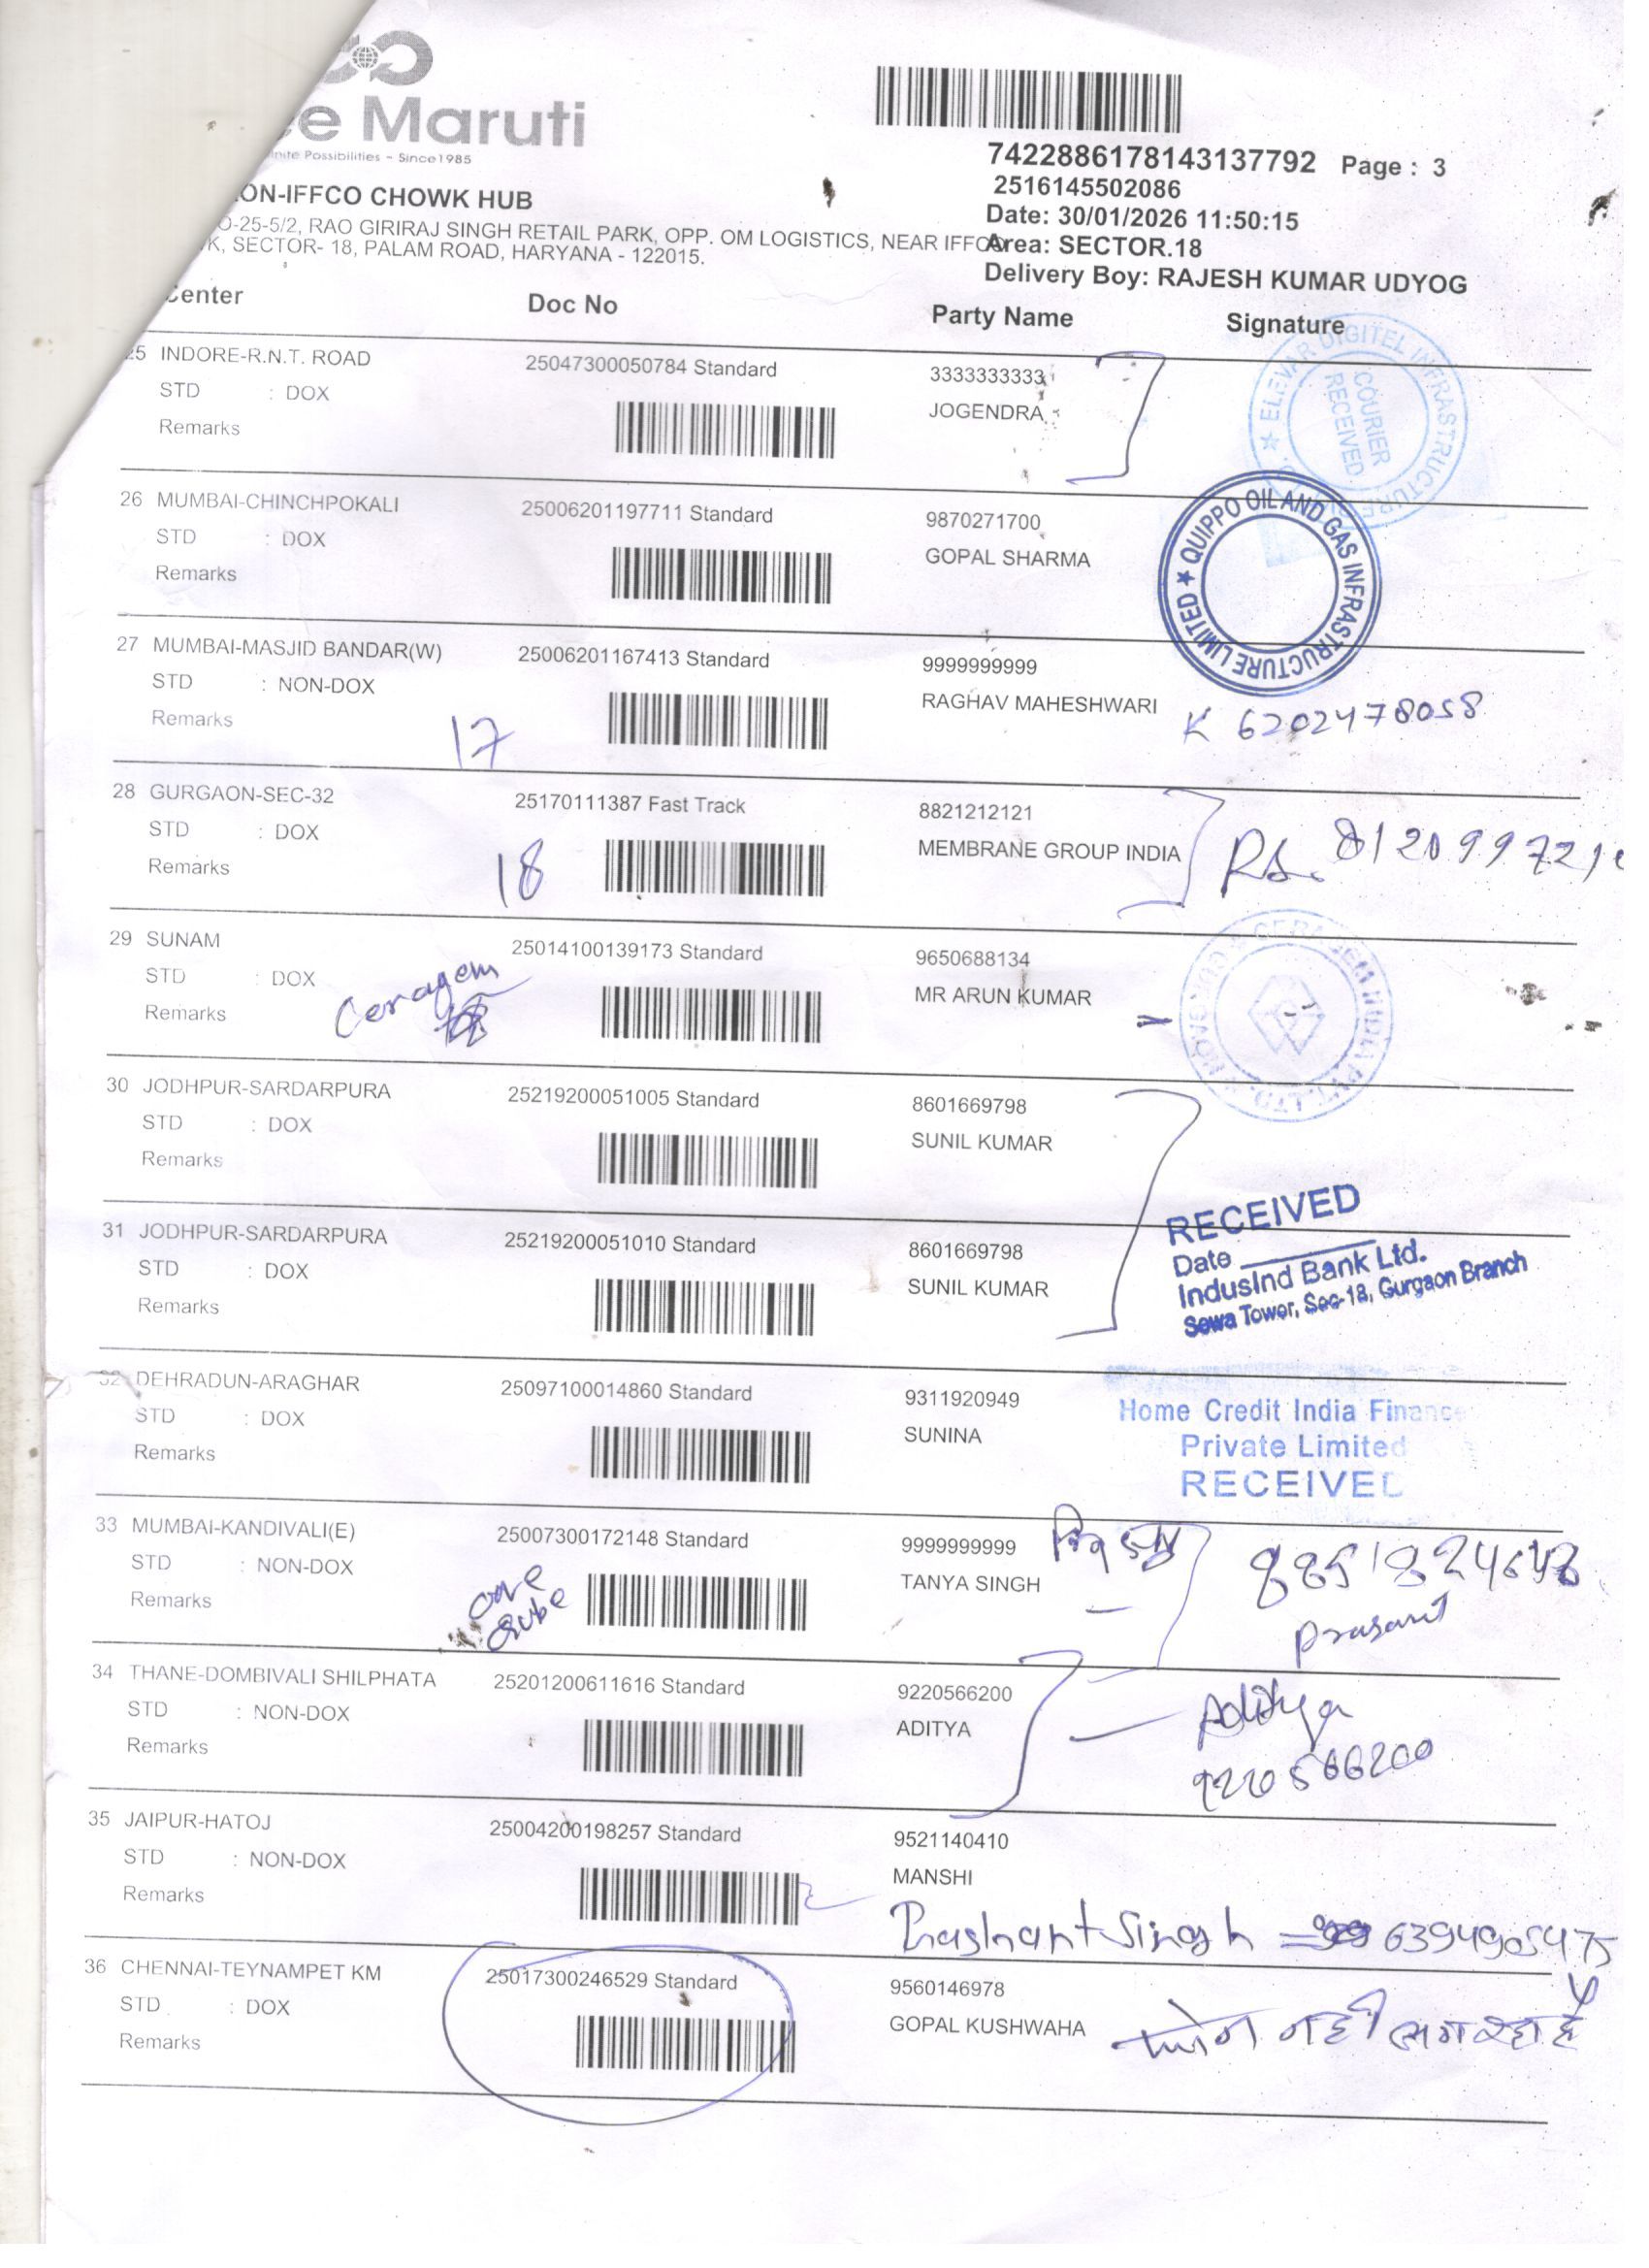 e Maruti
inite Possibilities - Since1985
7422886178143137792 Page : 3
2516145502086
Date: 30/01/2026 11:50:15
Area: SECTOR.18
Delivery Boy: RAJESH KUMAR UDYOG
ON-IFFCO CHOWK HUB
O-25-5/2, RAO GIRIRAJ SINGH RETAIL PARK, OPP. OM LOGISTICS, NEAR IFFCO
K, SECTOR- 18, PALAM ROAD, HARYANA - 122015.
Center Doc No Party Name Signature
25 INDORE-R.N.T. ROAD 25047300050784 Standard 3333333333
STD : DOX JOGENDRA
Remarks
ELEVAR DIGITEL INFRASTRUCTURE
COURIER
RECEIVED
26 MUMBAI-CHINCHPOKALI 25006201197711 Standard 9870271700
STD : DOX GOPAL SHARMA
Remarks
QUIPPO OIL AND GAS INFRASTRUCTURE LIMITED
27 MUMBAI-MASJID BANDAR(W) 25006201167413 Standard 9999999999
STD : NON-DOX RAGHAV MAHESHWARI
Remarks 17 K 6202478058
28 GURGAON-SEC-32 25170111387 Fast Track 8821212121
STD : DOX MEMBRANE GROUP INDIA
Remarks 18
29 SUNAM 25014100139173 Standard 9650688134
STD : DOX MR ARUN KUMAR
Remarks Ceragem
CERAGEM INDIA PVT. LTD.
30 JODHPUR-SARDARPURA 25219200051005 Standard 8601669798
STD : DOX SUNIL KUMAR
Remarks
31 JODHPUR-SARDARPURA 25219200051010 Standard 8601669798
STD : DOX SUNIL KUMAR
Remarks
RECEIVED
Date
IndusInd Bank Ltd.
Sewa Tower, Sec-18, Gurgaon Branch
32 DEHRADUN-ARAGHAR 25097100014860 Standard 9311920949
STD : DOX SUNINA
Remarks
Home Credit India Finance
Private Limited
RECEIVED
33 MUMBAI-KANDIVALI(E) 25007300172148 Standard 9999999999
STD : NON-DOX TANYA SINGH
Remarks
Prasant
34 THANE-DOMBIVALI SHILPHATA 25201200611616 Standard 9220566200
STD : NON-DOX ADITYA
Remarks
Aditya
9220566200
35 JAIPUR-HATOJ 25004200198257 Standard 9521140410
STD : NON-DOX MANSHI
Remarks
Prashant Singh = 6394905475
36 CHENNAI-TEYNAMPET KM 25017300246529 Standard 9560146978
STD : DOX GOPAL KUSHWAHA
Remarks
फोन नही लग रहा है